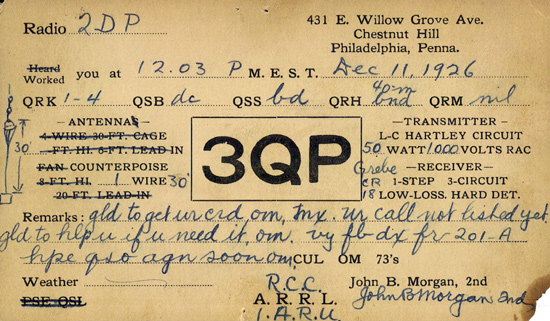 Radio 2DP
431 E. Willow Grove Ave.
Chestnut Hill
Philadelphia, Penna.
Heard
Worked you at 12.03 P M. E. S. T. Dec 11, 1926
QRK 1-4 QSB dc QSS bd QRH bnd QRM nil
—ANTENNAS—
4-WIRE 30-FT. CAGE
-FT. HI. 6-FT. LEAD IN
30'
FAN COUNTERPOISE
8-FT. HI. 1 WIRE 30'
20-FT. LEAD-IN
3QP
—TRANSMITTER—
L-C HARTLEY CIRCUIT
50 WATT 1000 VOLTS RAC
Grebe —RECEIVER—
CR 1-STEP 3-CIRCUIT
18 LOW-LOSS. HARD DET.
Remarks: gld to get ur crd, om, tnx. ur call not listed yet
gld to hlp u if u need it, om. vy fb dx fr 201-A
hpe qso agn soon om, CUL OM 73's
Weather
PSE QSL
R.C.C.
A. R. R. L.
I.A.R.U.
John B. Morgan, 2nd
John B Morgan 2nd